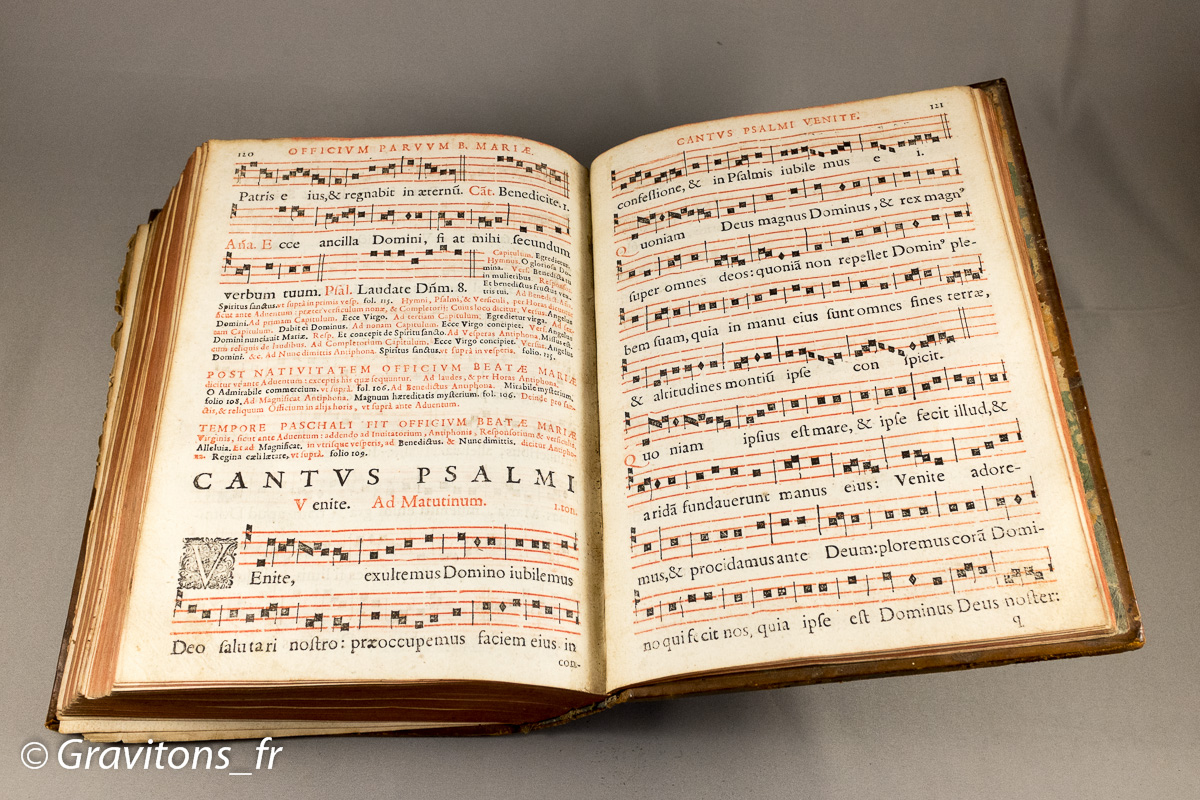 120 OFFICIVM PARVVM B. MARIÆ.
Patris e ius, & regnabit in æternũ. Cãt. Benedicite. 1.
Añа. E cce ancilla Domini, fi at mihi ſecundum
verbum tuum. Pſal. Laudate Dñm. 8.
Capitulum. Egredietur.
Hymnus. O glorioſa Do-
mina. Verſ. Benedicta tu
in mulieribus Reſponſio.
Et benedictus fructus ven-
tris tui. Ad Benedict. Aña.
Spiritus ſanctus. vt ſuprà in primis veſp. fol. 115. Hymni, Pſalmi, & Verſiculi, per Horas dicuntur
ſicut ante Aduentum: præter verſiculum nonæ, & Completorij: Cuius loco dicitur. Verſus. Angelus
Domini. Ad primam Capitulum. Ecce Virgo. Ad tertiam Capitulum; Egredietur virga. Ad ſex-
tam Capitulum. Dabit ei Dominus. Ad nonam Capitulum. Ecce Virgo concipiet. Verſ. Angelus
Domini nunciauit Mariæ. Reſp. Et concepit de Spiritu ſancto. Ad Veſperas Antiphona. Miſſus eſt.
cum reliquis de laudibus. Ad Completorium Capitulum. Ecce Virgo concipiet. Verſus. Angelus
Domini. &c. Ad Nunc dimittis Antiphona. Spiritus ſanctus. vt ſuprà in veſperis. folio. 115.
POST NATIVITATEM OFFICIVM BEATÆ MARIÆ
dicitur vt ante Aduentum: exceptis his quæ ſequuntur. Ad laudes, & per Horas Antiphona.
O Admirabile commercium. vt ſuprà fol. 106. Ad Benedictus Antiphona. Mirabile myſterium,
folio 108. Ad Magnificat Antiphona. Magnum hæreditatis myſterium. fol. 106. Deinde pro ſan-
ctis, & reliquum Officium in alijs horis, vt ſuprà ante Aduentum.
TEMPORE PASCHALI FIT OFFICIVM BEATÆ MARIÆ
Virginis, ſicut ante Aduentum: addendo ad Inuitatorium, Antiphonis, Reſponſorium & verſiculis,
Alleluia. Et ad Magnificat. in vtriſque veſperis, ad Benedictus. & Nunc dimittis, dicitur Antipho-
na. Regina cæli lætare, vt ſuprà. folio 109.
CANTVS PSALMI
Venite. Ad Matutinum. 1. ton.
VEnite, exultemus Domino iubilemus
Deo ſalutari noſtro: præoccupemus faciem eius in
con-
CANTVS PSALMI VENITE. 121
confeſſione, & in Pſalmis iubile mus e i.
Q uoniam Deus magnus Dominus, & rex magn⁹
ſuper omnes deos: quoniã non repellet Domin⁹ ple-
bem ſuam, quia in manu eius ſunt omnes fines terræ,
& altitudines montiũ ipſe con ſpicit.
Quo niam ipſius eſt mare, & ipſe fecit illud, &
aridã fundauerunt manus eius: Venite adore-
mus, & procidamus ante Deum: ploremus corã Domi-
no qui fecit nos, quia ipſe eſt Dominus Deus noſter:
q
© Gravitons_fr